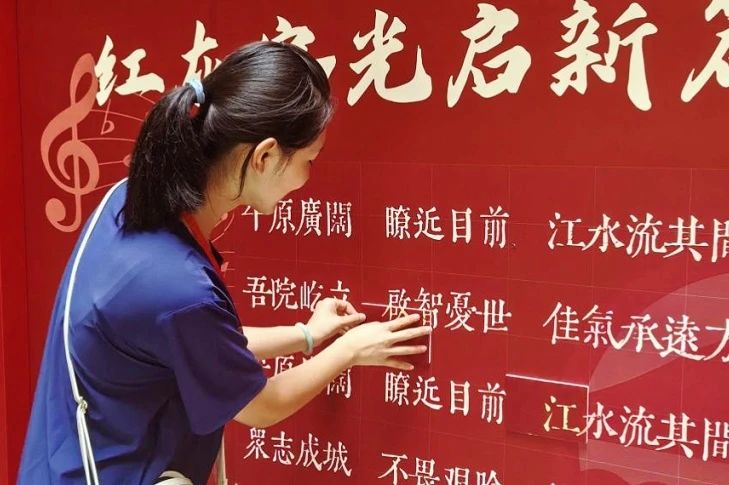 红 光启新
原廣闊 瞭近目前 江水流其間
吾院屹立 啟智憂世 佳氣承遠
闊 瞭近目前 江水流其間
眾志成城 不畏艱險